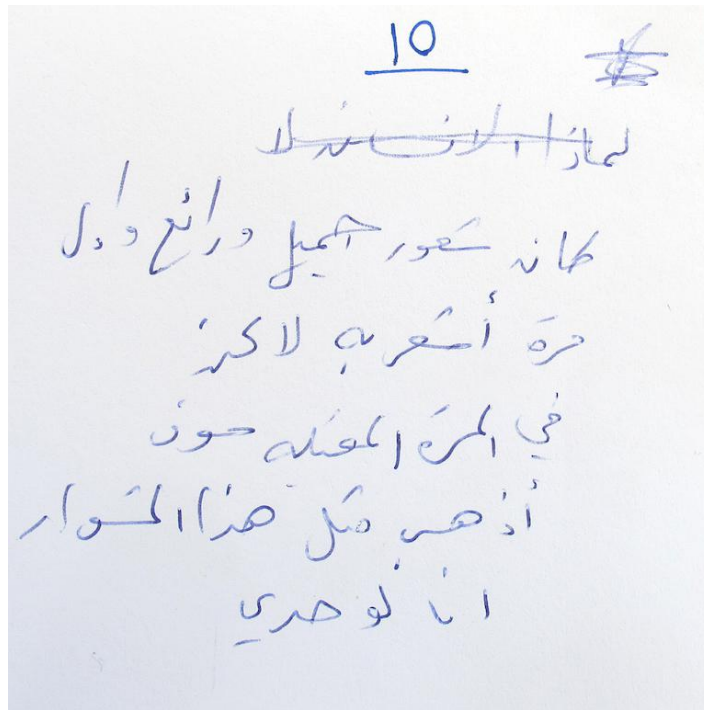 10
لماذا الانسان لا
كان شعور جميل ورائع واول
مرة أشعر به لاكن
في المرة المقبله سوف
أذهب مثل هذا المشوار
انا لوحدي